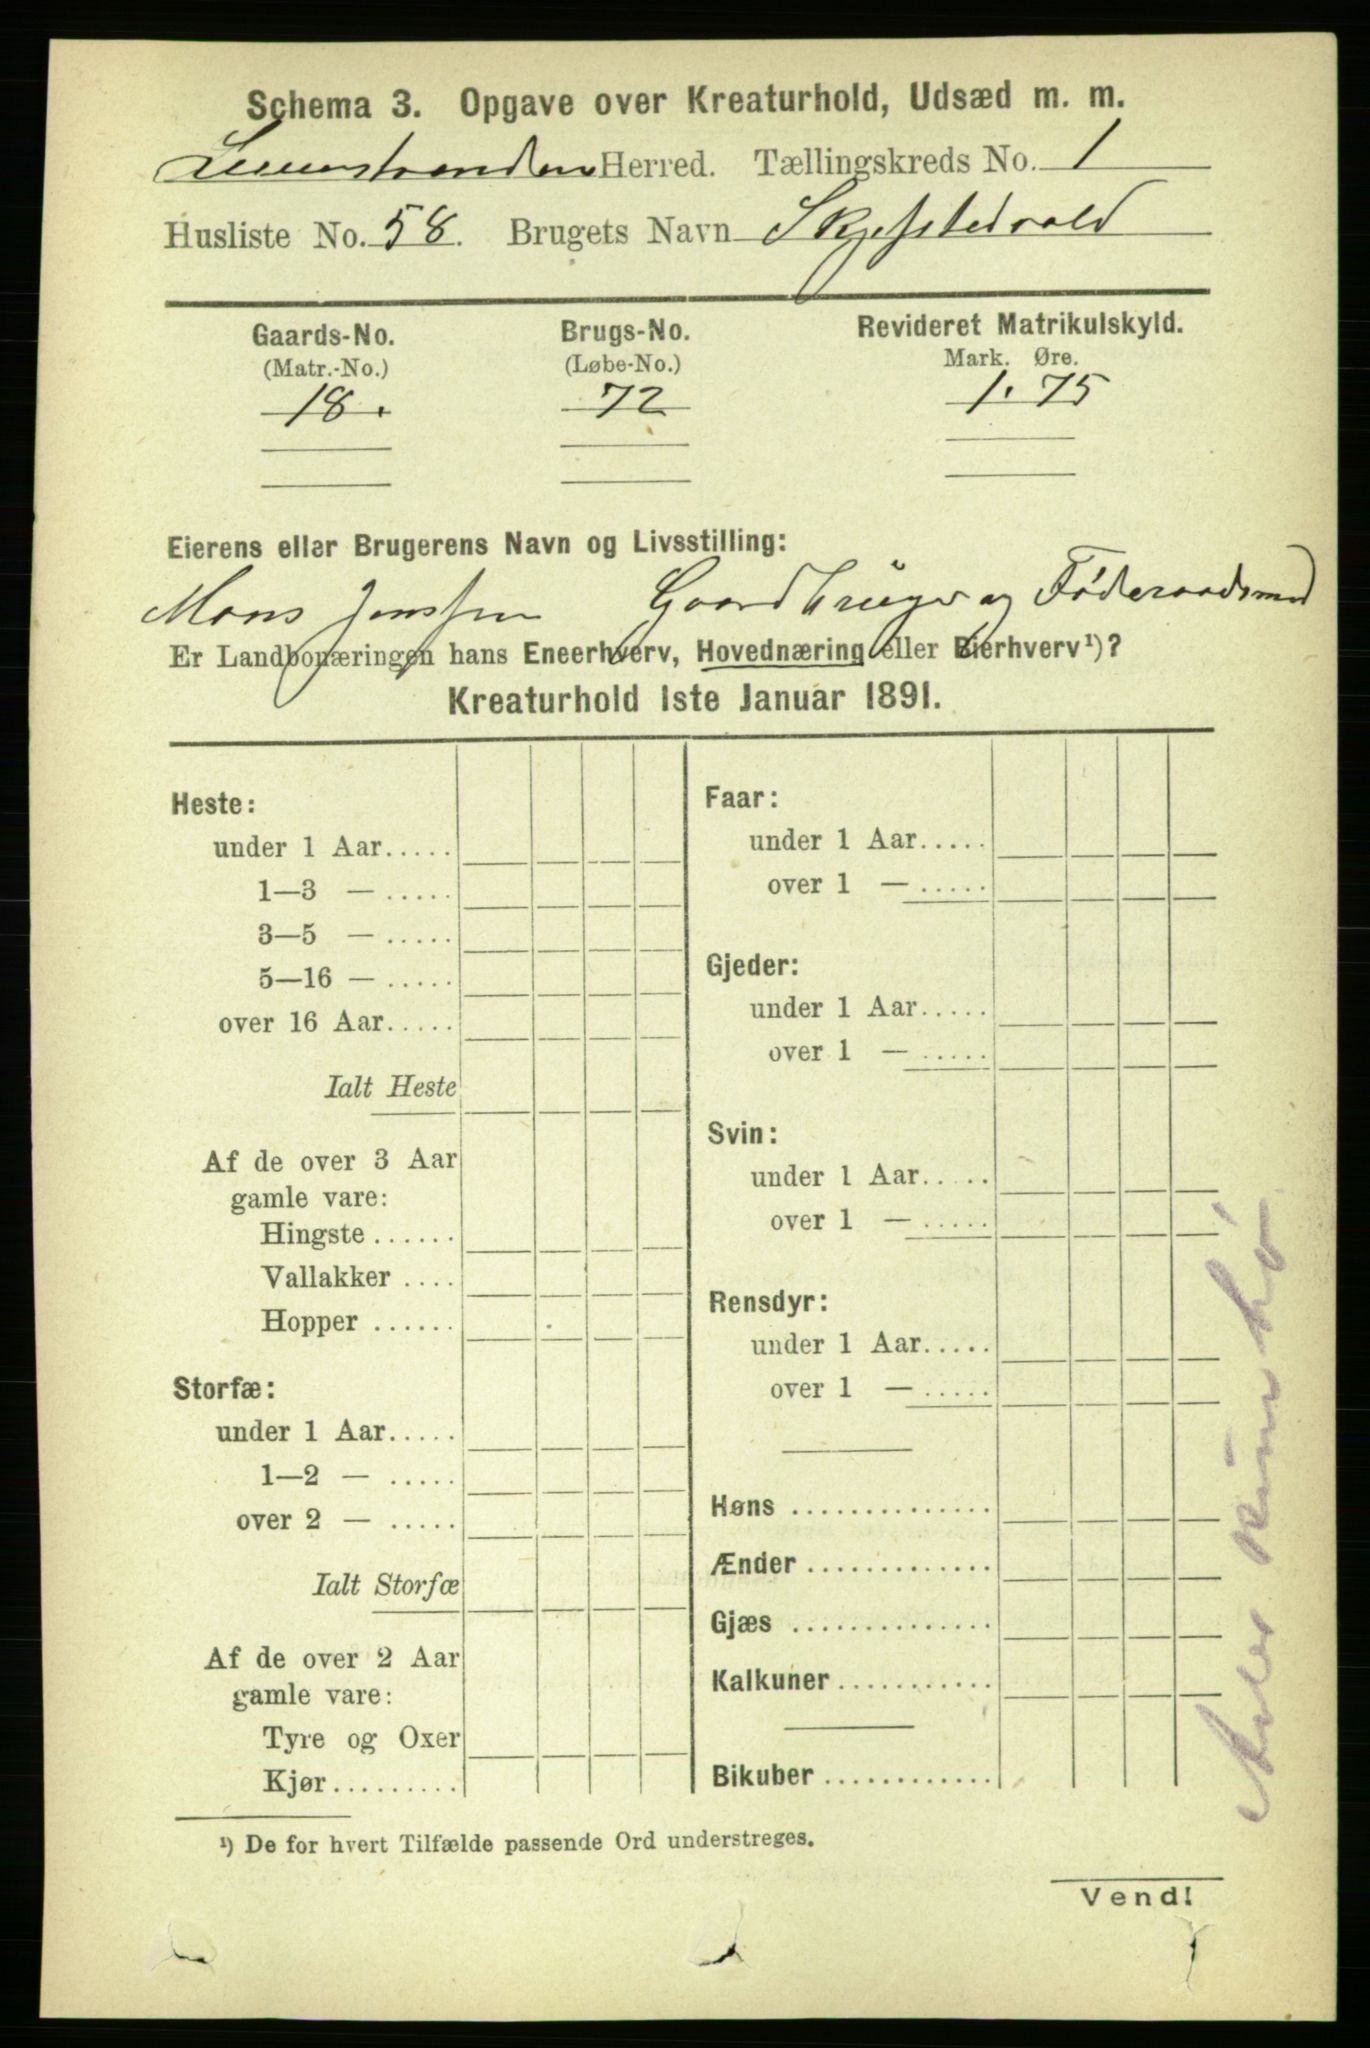 Schema 3. Opgave over Kreaturhold, Udsæd m. m.
Herred. Tællingskreds No. 1
Husliste No. 58. Brugets Navn
Gaards-No. Brugs-No. Revideret Matrikulskyld.
(Matr.-No.) (Løbe-No.) Mark. Øre.
18. 72 1. 75
Eierens eller Brugerens Navn og Livsstilling:
Mons Jenssen Gaardbruger og Föderaadsmd
Er Landbonæringen hans Eneerhverv, Hovednæring eller Bierhverv¹)?
Kreaturhold 1ste Januar 1891.
Heste:
under 1 Aar.....
1—3 — .....
3—5 — .....
5—16 — .....
over 16 Aar.....
Ialt Heste
Af de over 3 Aar
gamle vare:
Hingste ......
Vallakker ....
Hopper ......
Storfæ:
under 1 Aar.....
1—2 — .....
over 2 — .....
Ialt Storfæ
Af de over 2 Aar
gamle vare:
Tyre og Oxer
Kjør.........
Faar:
under 1 Aar.....
over 1 — .....
Gjeder:
under 1 Aar.....
over 1 — .....
Svin:
under 1 Aar.....
over 1 — .....
Rensdyr:
under 1 Aar.....
over 1 — .....
Høns ..............
Ænder .............
Gjæs ..............
Kalkuner ...........
Bikuber ............
¹) De for hvert Tilfælde passende Ord understreges.
Vend!